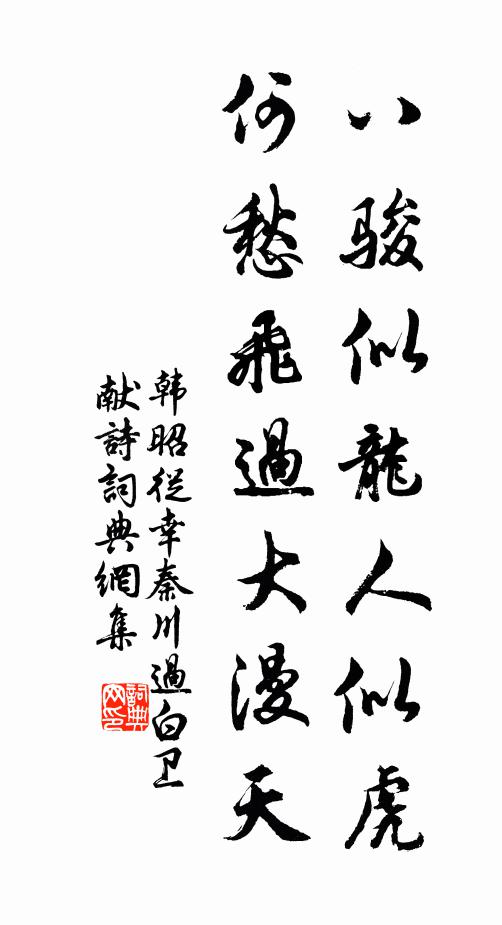 八骏似龍人似虎
何愁飛過大漫天
韩昭從幸秦川過白卫
献詩詞典網集
詞典
网印